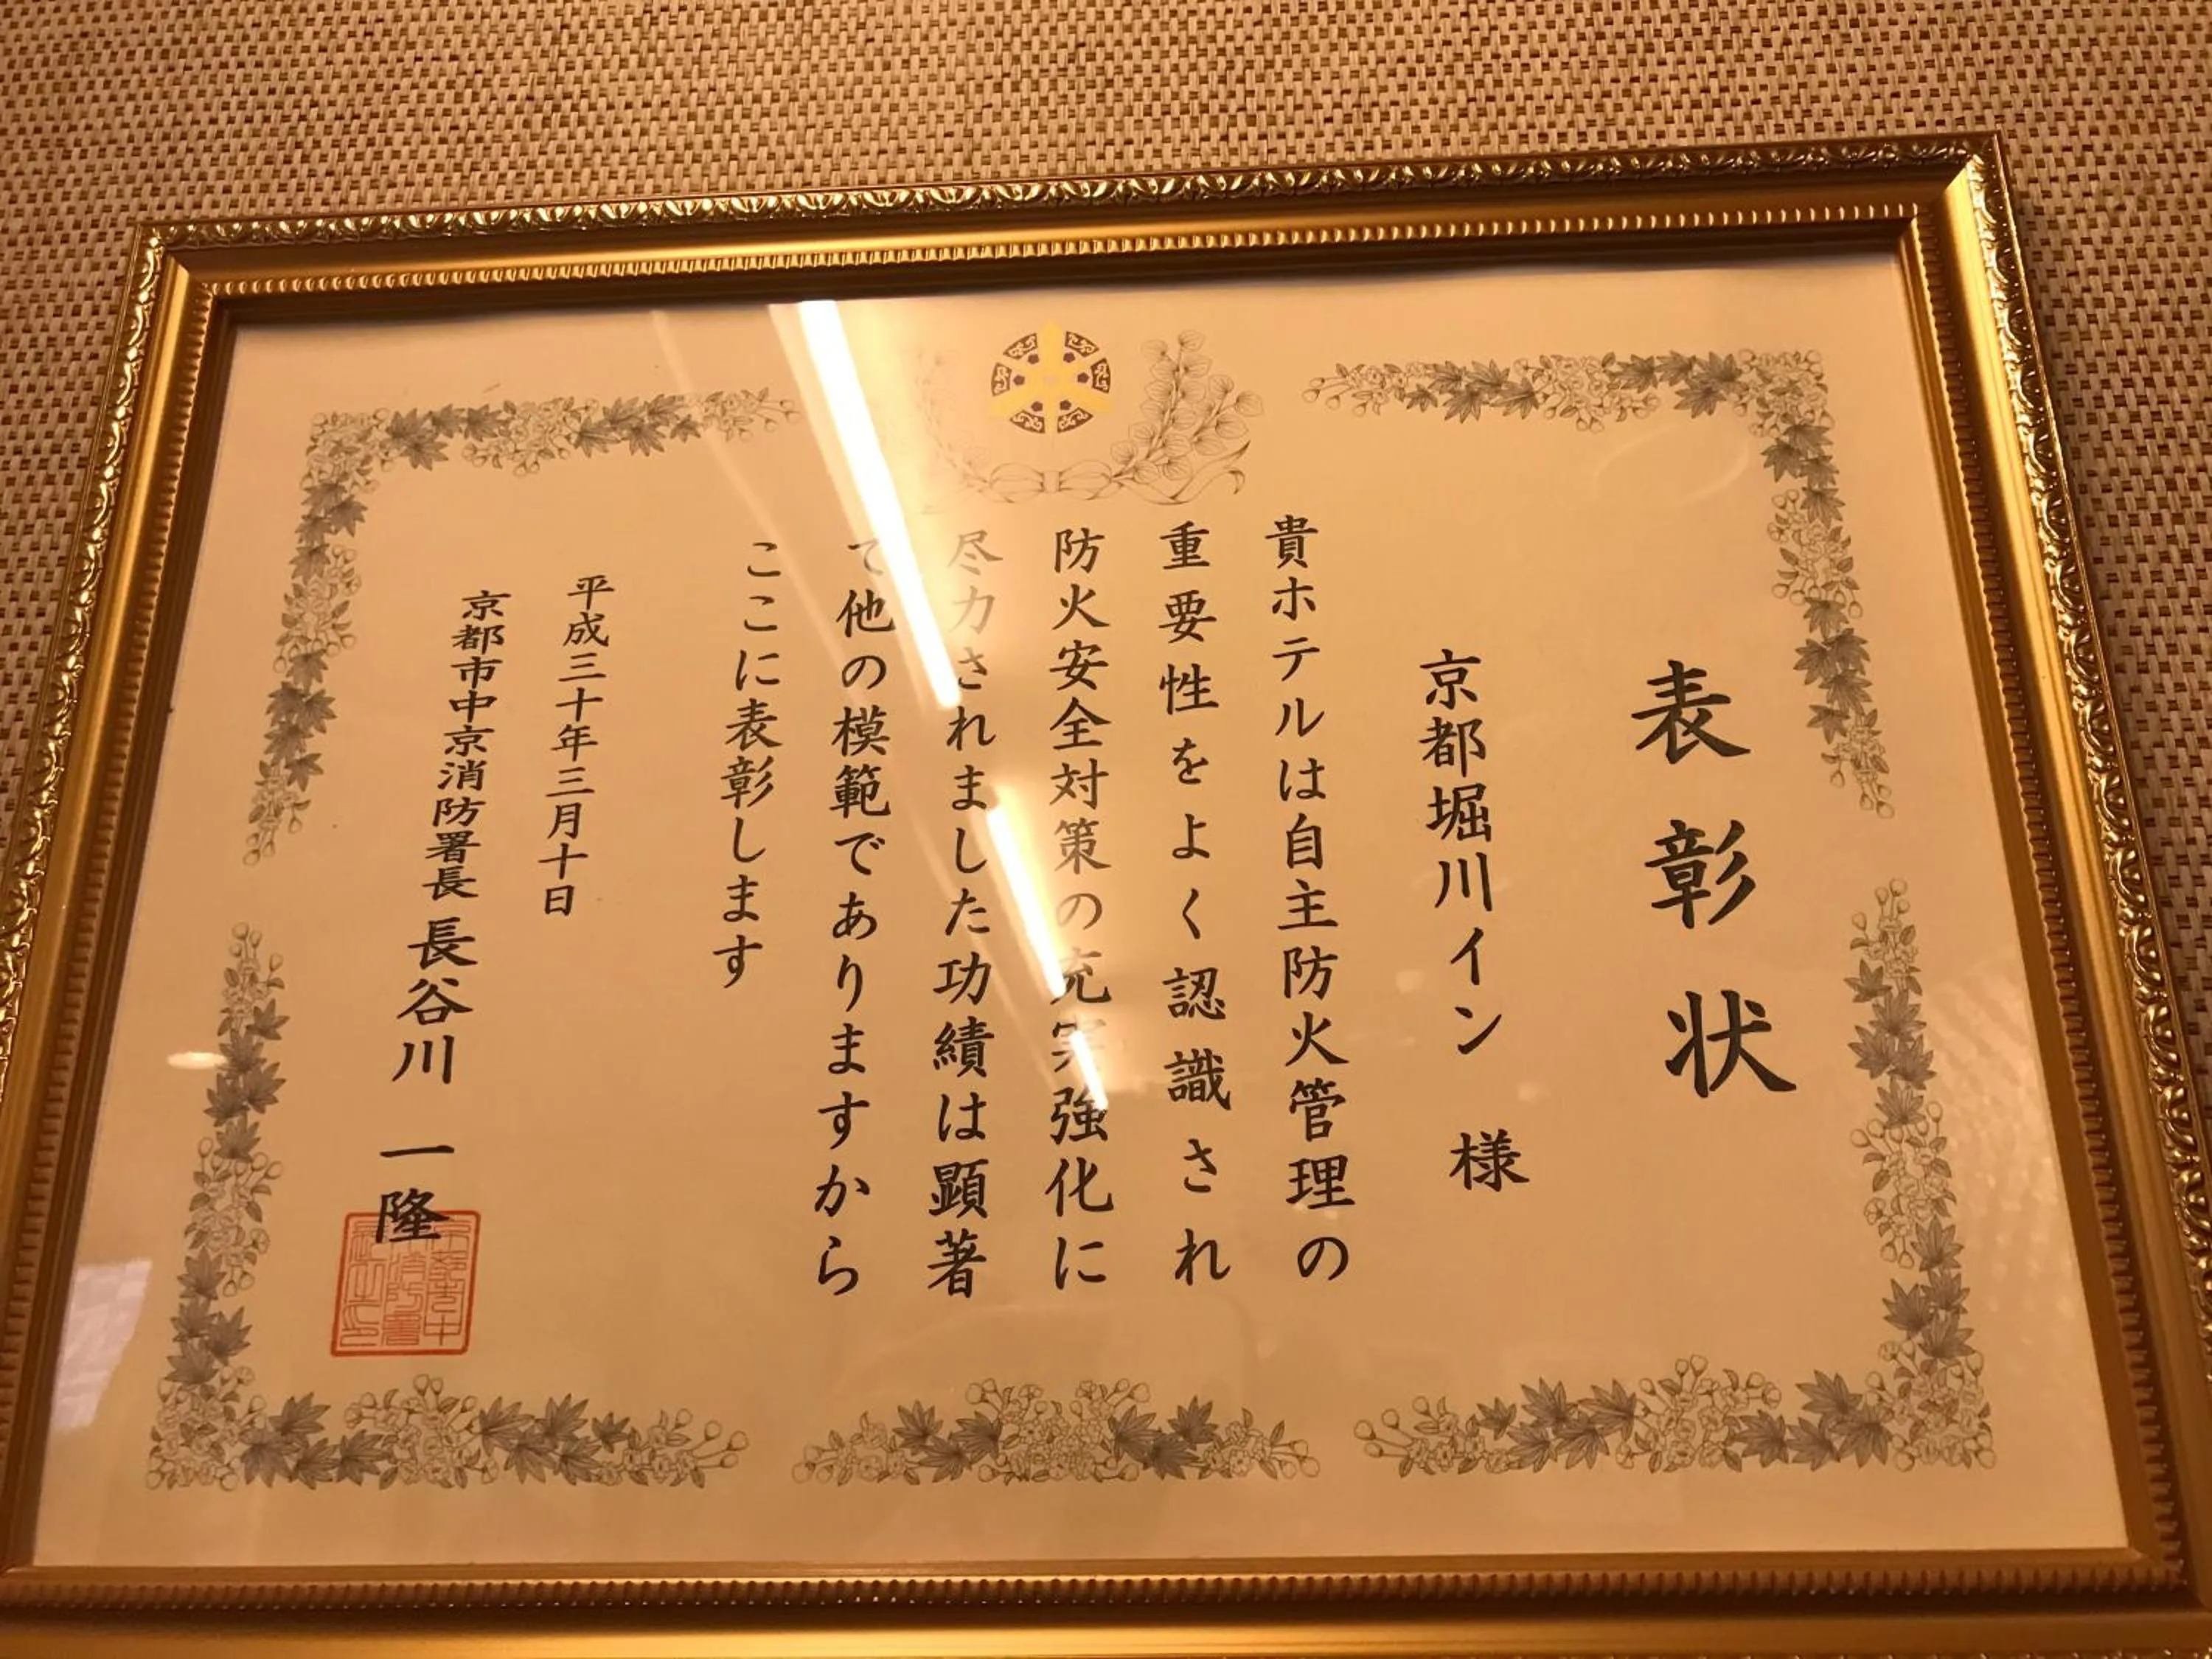 表彰状
京都堀川イン 様
貴ホテルは自主防火管理の
重要性をよく認識され
防火安全対策の充実強化に
尽力されました功績は顕著
で他の模範でありますから
ここに表彰します
平成三十年三月十日
京都市中京消防署長 長谷川 一隆